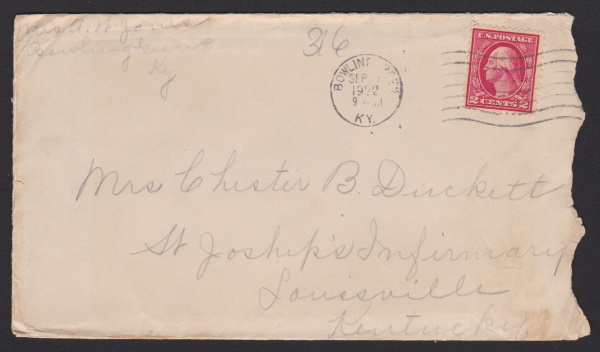 Mrs A. H. Jones
Bowling Green
Ky
316
BOWLING GREEN
SEP
1922
9
KY.
U.S. POSTAGE
2 CENTS 2
Mrs Chester B. Duckett
St Joship's Infirmary
Louisville
Kentucky